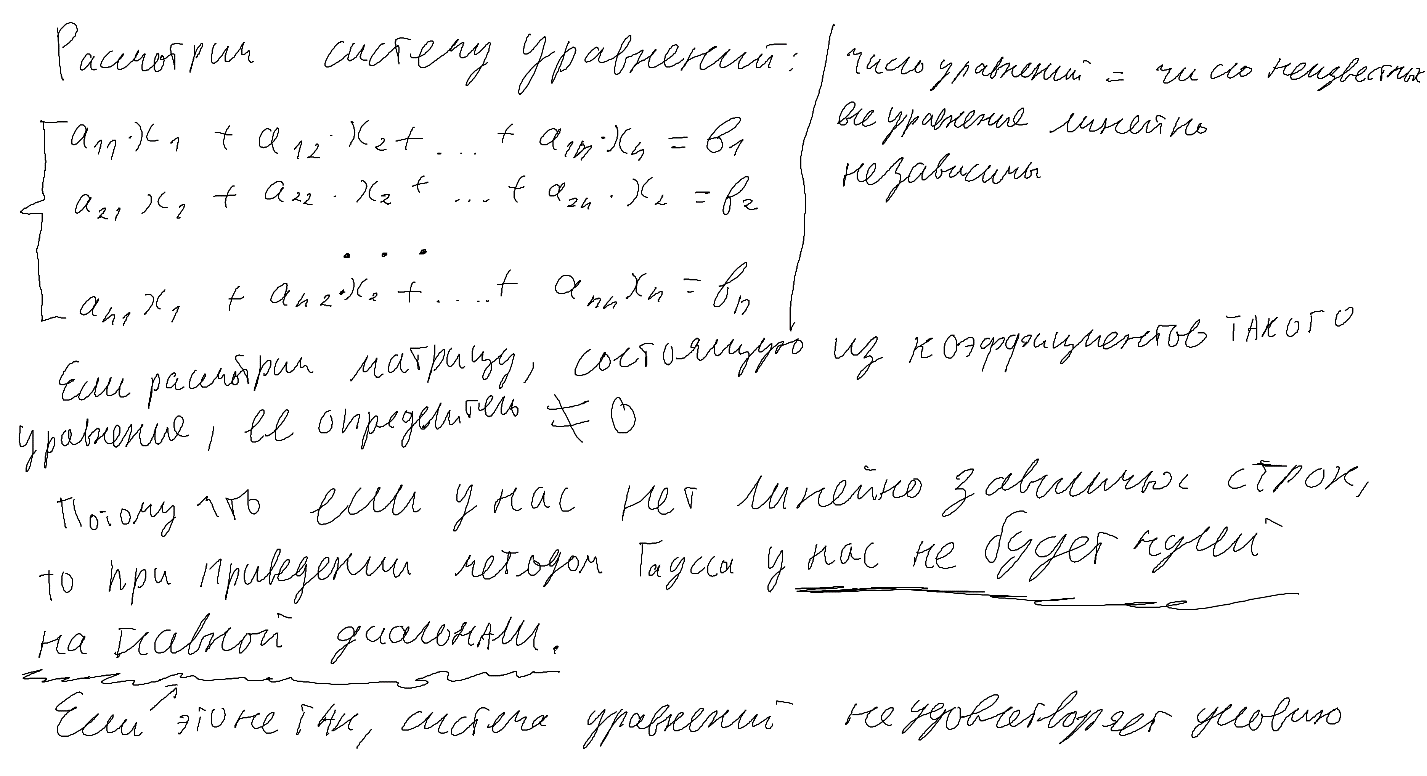 Рассмотрим систему уравнений:
a₁₁·x₁ + a₁₂·x₂ + ... + a₁ₙ·xₙ = b₁
a₂₁ x₂ + a₂₂·x₂ + ... + a₂ₙ·x₂ = b₂
. . .
aₙ₁x₁ + aₙ₂·x₂ + .... + aₙₙxₙ = bₙ
число уравнений = число неизвестных
все уравнения линейно
независимы
Если рассмотрим матрицу, состоящую из коэффициентов такого
уравнения, её определитель ≠ 0
Потому что если у нас нет линейно зависимых строк,
то при приведении методом Гаусса у нас не будет нулей
на главной диагонали.
Если это не так, система уравнений не удовлетворяет условию